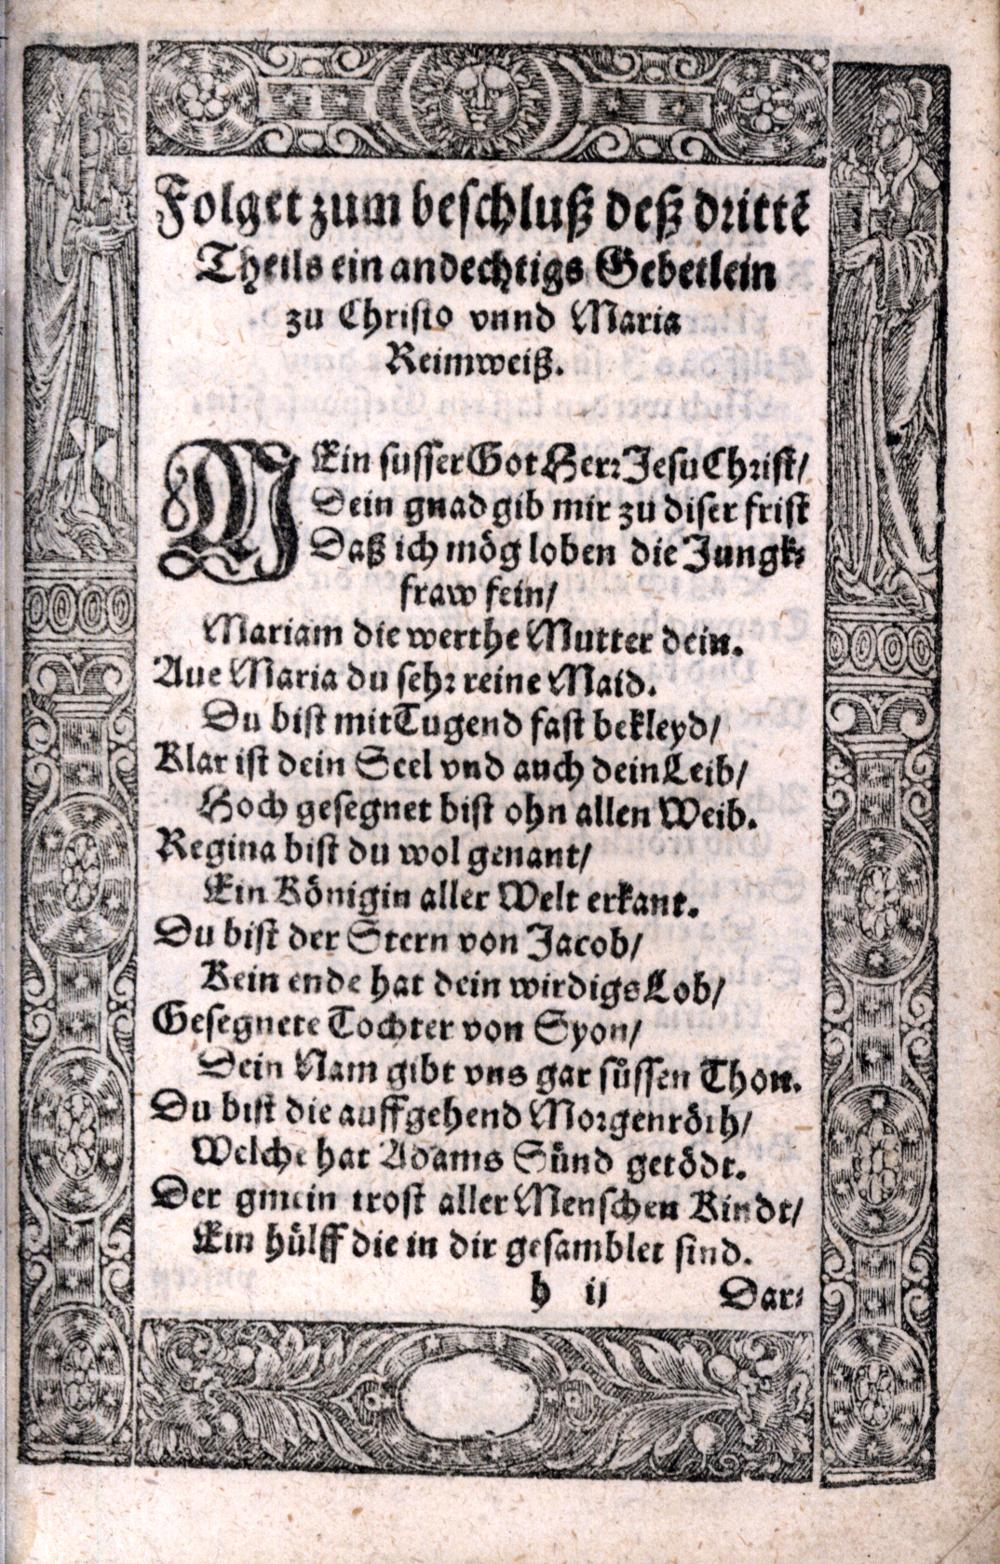 Folget zum beschluß deß drittē
Theils ein andechtigs Gebetlein
zu Christo vnnd Maria
Reimweiß.
MEin süsser Got Herr Jesu Christ/
Dein gnad gib mir zu diser frist
Daß ich mög loben die Jungk-
fraw fein/
Mariam die werthe Mutter dein.
Aue Maria du sehr reine Maid.
Du bist mit Tugend fast bekleyd/
Klar ist dein Seel vnd auch dein Leib/
Hoch gesegnet bist ohn allen Weib.
Regina bist du wol genant/
Ein Königin aller Welt erkant.
Du bist der Stern von Jacob/
Kein ende hat dein wirdigs Lob/
Gesegnete Tochter von Syon/
Dein Nam gibt vns gar süssen Thon.
Du bist die auffgehend Morgenröth/
Welche hat Adams Sünd getödt.
Der gmein trost aller Menschen Kindt/
Ein hülff die in dir gesamblet sind.
h ij Dar-